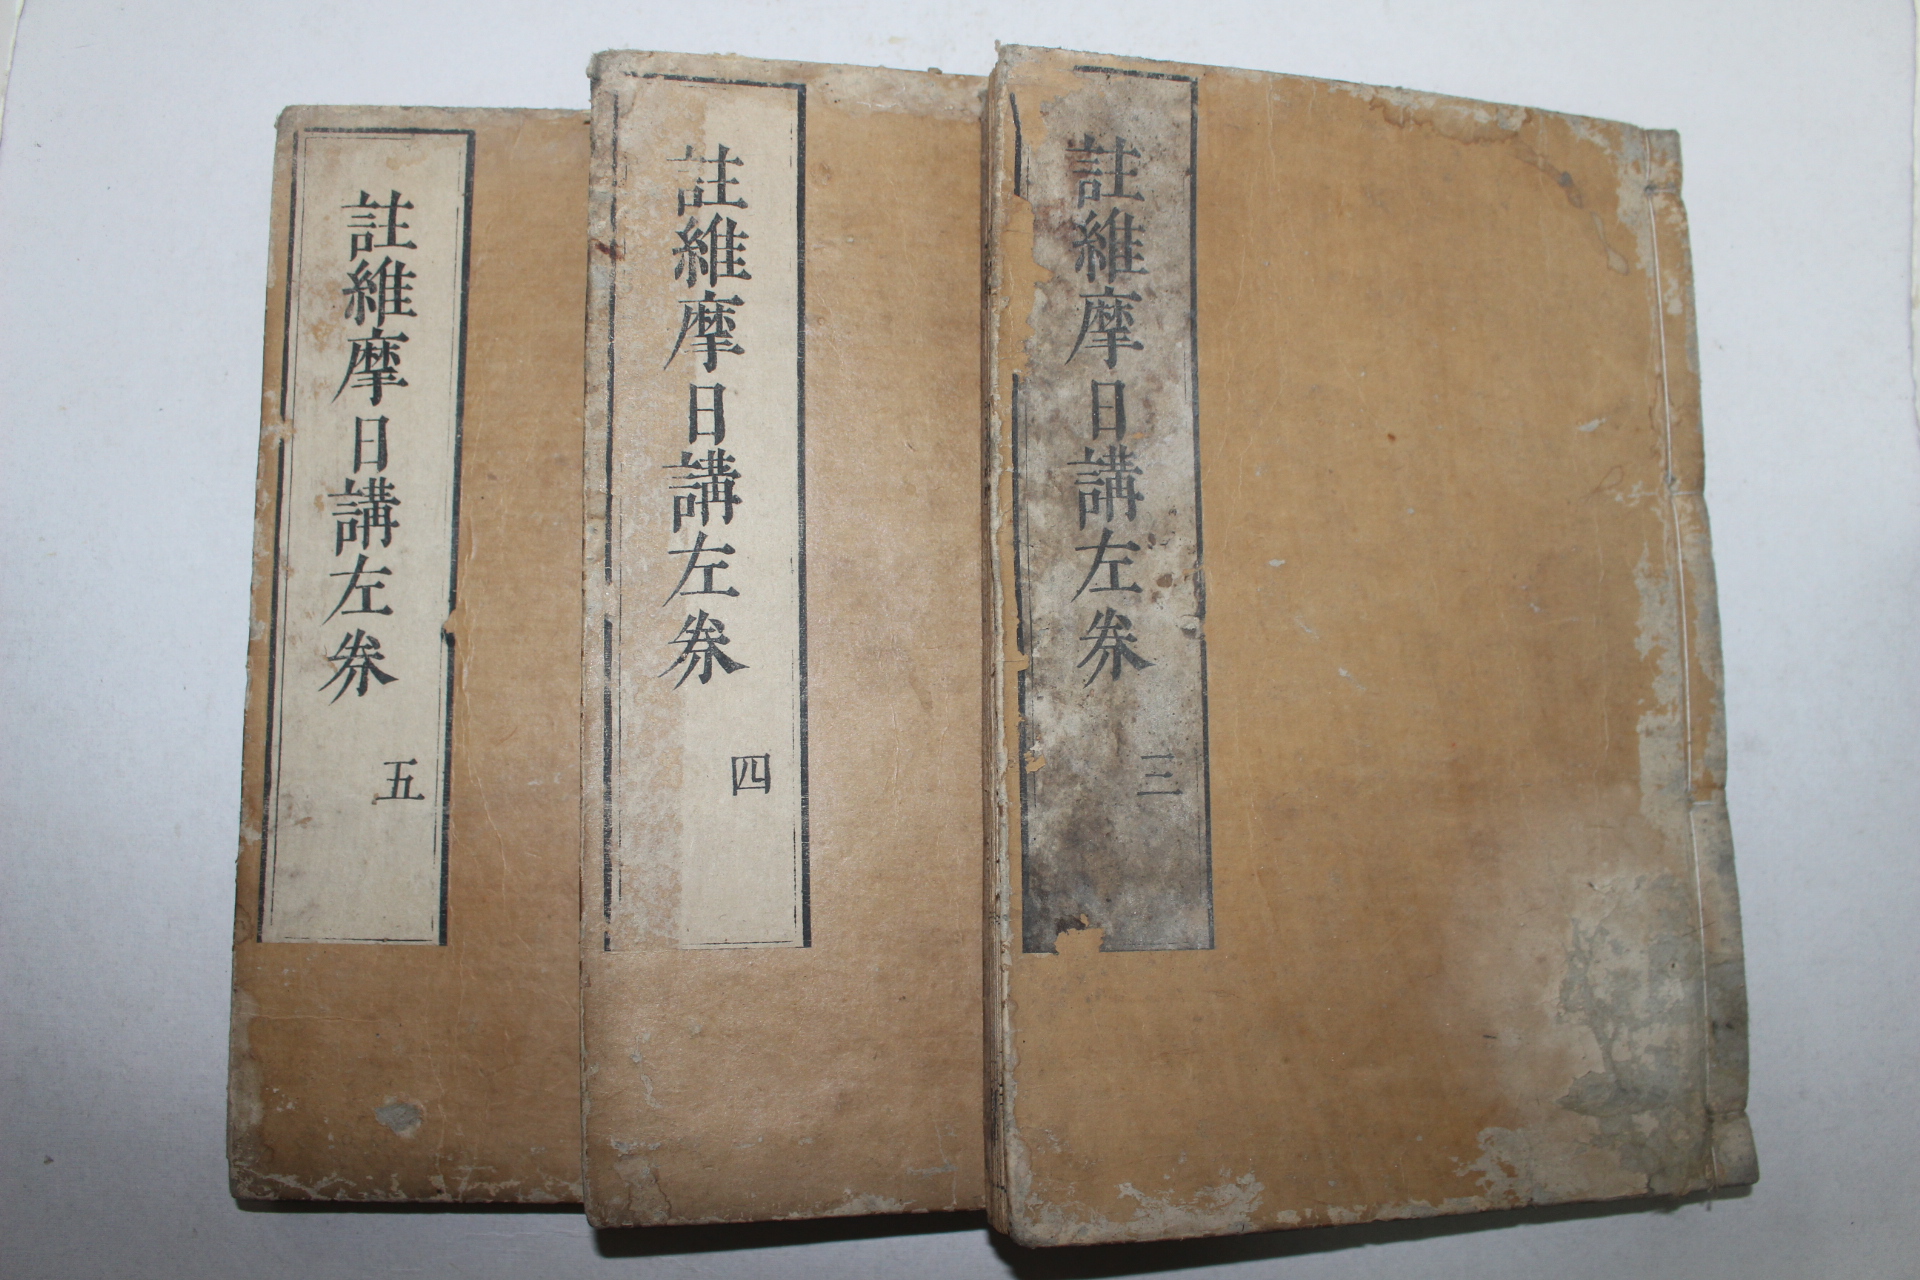 註維摩日講左券
三
註維摩日講左券
四
註維摩日講左券
五